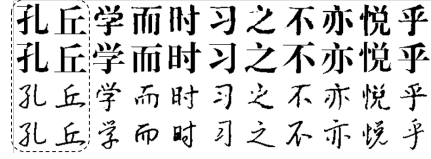 孔丘学而时习之不亦悦乎
孔丘学而时习之不亦悦乎
孔丘学而时习之不亦悦乎
孔丘学而时习之不亦悦乎